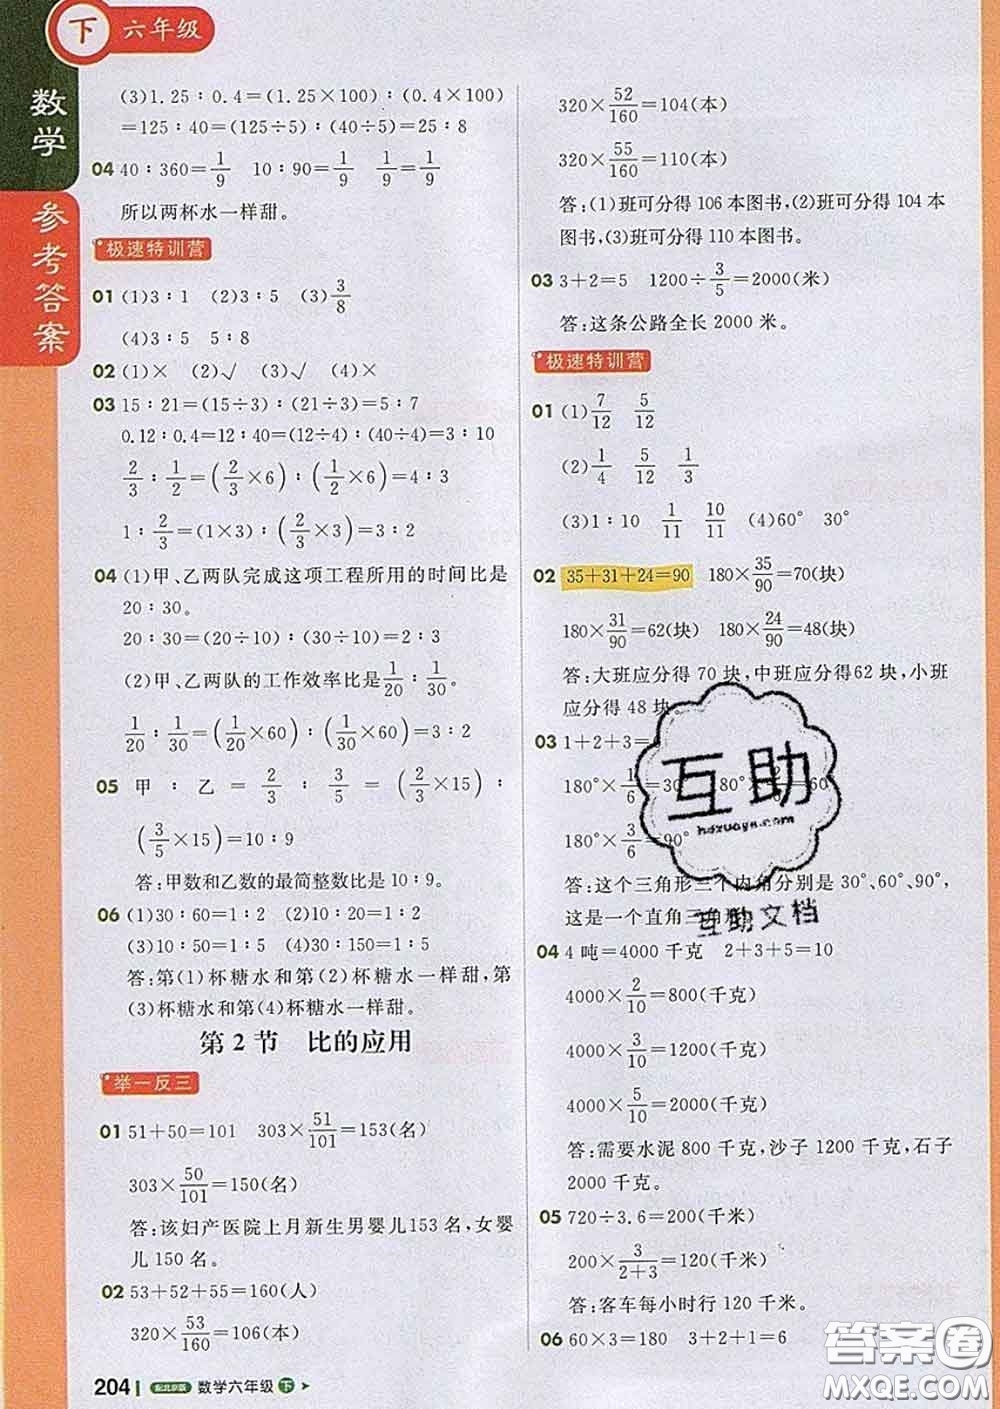 下 六年级
数学
参考答案
(3)1.25∶0.4=(1.25×100)∶(0.4×100)
=125∶40=(125÷5)∶(40÷5)=25∶8
04 40∶360=1/9 10∶90=1/9 1/9=1/9
所以两杯水一样甜。
极速特训营
01 (1)3∶1 (2)3∶5 (3)3/8
(4)3∶5 5∶8
02 (1)× (2)√ (3)√ (4)×
03 15∶21=(15÷3)∶(21÷3)=5∶7
0.12∶0.4=12∶40=(12÷4)∶(40÷4)=3∶10
2/3∶1/2=(2/3×6)∶(1/2×6)=4∶3
1∶2/3=(1×3)∶(2/3×3)=3∶2
04 (1)甲、乙两队完成这项工程所用的时间比是
20∶30。
20∶30=(20÷10)∶(30÷10)=2∶3
(2)甲、乙两队的工作效率比是1/20∶1/30。
1/20∶1/30=(1/20×60)∶(1/30×60)=3∶2
05 甲∶乙=2/3∶3/5=(2/3×15)∶
(3/5×15)=10∶9
答:甲数和乙数的最简整数比是10∶9。
06 (1)30∶60=1∶2 (2)10∶20=1∶2
(3)10∶50=1∶5 (4)30∶150=1∶5
答:第(1)杯糖水和第(2)杯糖水一样甜,第
(3)杯糖水和第(4)杯糖水一样甜。
第2节 比的应用
举一反三
01 51+50=101 303×51/101=153(名)
303×50/101=150(名)
答:该妇产医院上月新生男婴儿153名,女婴
儿150名。
02 53+52+55=160(人)
320×53/160=106(本)
204 配北京版 数学六年级 下
320×52/160=104(本)
320×55/160=110(本)
答:(1)班可分得106本图书,(2)班可分得104本
图书,(3)班可分得110本图书。
03 3+2=5 1200÷3/5=2000(米)
答:这条公路全长2000米。
极速特训营
01 (1)7/12 5/12
(2)1/4 5/12 1/3
(3)1∶10 1/11 10/11 (4)60° 30°
02 35+31+24=90 180×35/90=70(块)
180×31/90=62(块) 180×24/90=48(块)
答:大班应分得70块,中班应分得62块,小班
应分得48块。
03 1+2+3=6
180°×1/6=30° 180°×2/6=60°
180°×3/6=90°
答:这个三角形三个内角分别是30°、60°、90°,
这是一个直角三角形。
04 4吨=4000千克 2+3+5=10
4000×2/10=800(千克)
4000×3/10=1200(千克)
4000×5/10=2000(千克)
答:需要水泥800千克,沙子1200千克,石子
2000千克。
05 720÷3.6=200(千米)
200×3/(2+3)=120(千米)
答:客车每小时行120千米。
06 60×3=180 3+2+1=6
互助
hdzuoye.com
互助文档
答案圈
MXQE.COM